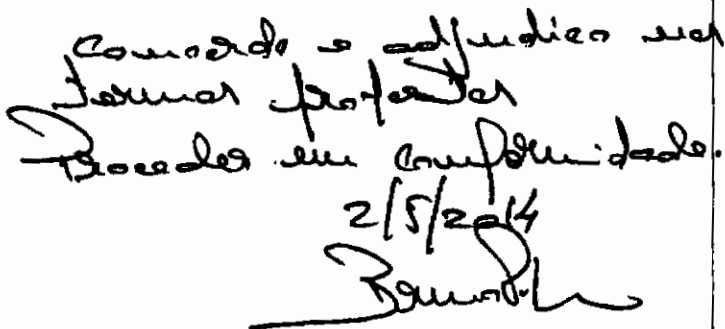 Concordo e adjudico nos
termos propostos
Proceder em conformidade.
2/5/2014